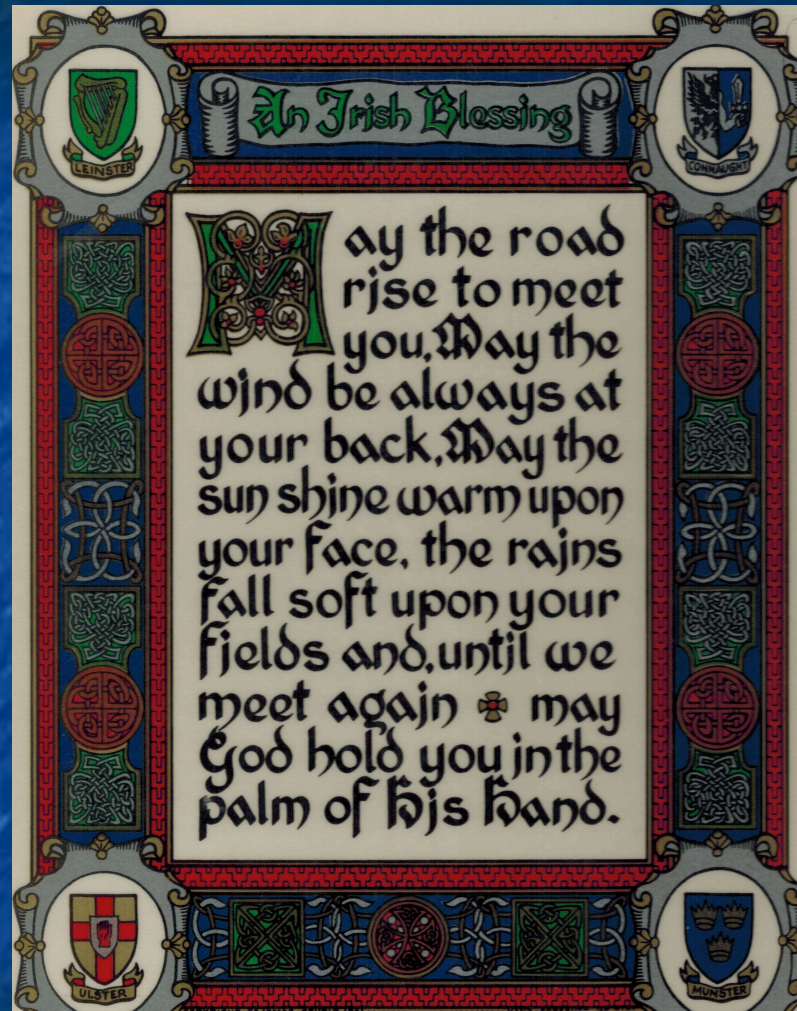 An Irish Blessing
LEINSTER
CONNAUGHT
May the road
rise to meet
you. May the
wind be always at
your back. May the
sun shine warm upon
your face, the rains
fall soft upon your
fields and, until we
meet again may
God hold you in the
palm of His Hand.
ULSTER
MUNSTER